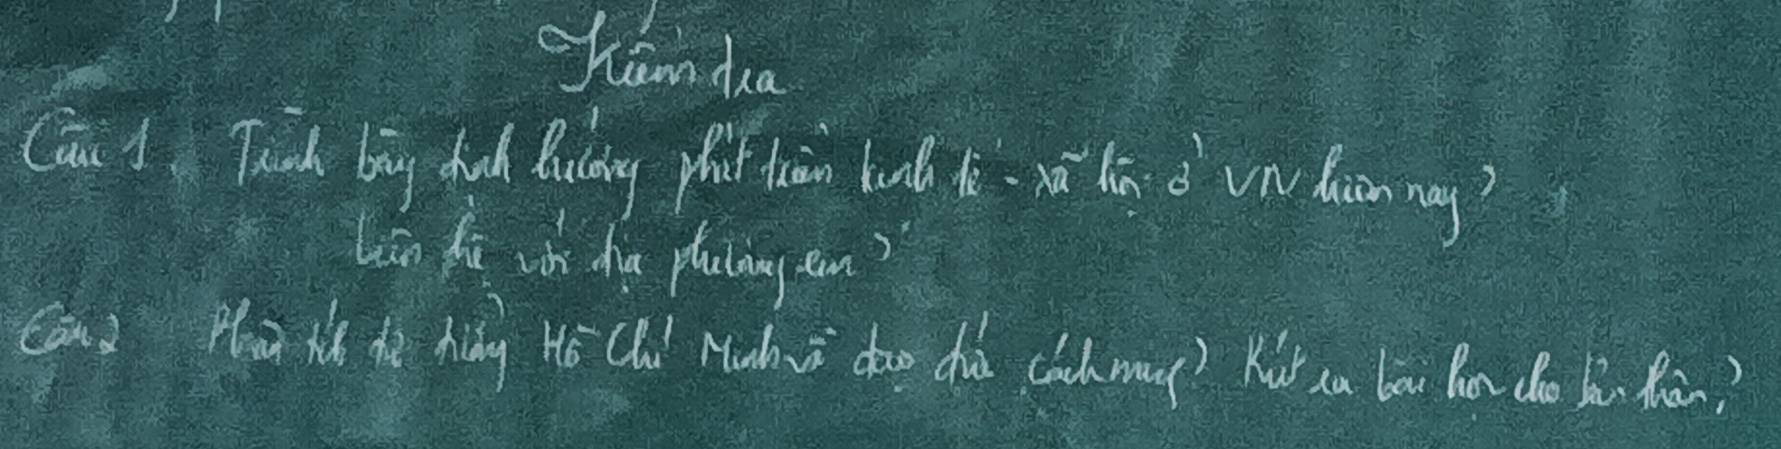 Kiểm tra
Câu 1. Trình bày định hướng phát triển kinh tế - xã hội ở VN hiện nay?
Liên hệ với địa phương em?
Câu 2 Phân tích tư tưởng Hồ Chí Minh về đạo đức cách mạng? Rút ra bài học cho bản thân?